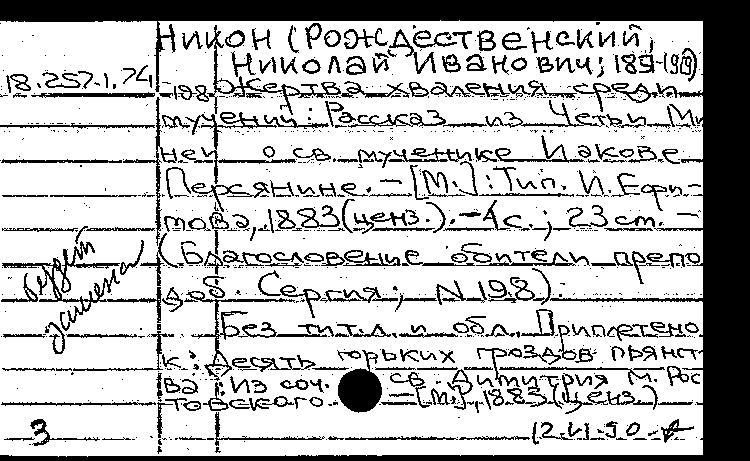 Никон (Рождественский,
Николай Иванович; 1851-1919)
18.257.1.74
-198 Жертва хваления среди
мучений: Рассказ из Четьи Ми
неи о св. мученике Иакове
Персянине. - [М.]: Тип. И. Ефи-
мова, 1883 (ценз.). - 4 с.; 23 см. -
(Благословение обители препо
доб. Сергия; N 198).
Без тит. л. и обл. Приплетено
к: Десять горьких гроздов пьянст
ва: Из соч. св. Димитрия М. Рос
товского. - [М.], 1883 (ценз.)
будет
замена
3
12.VI-90